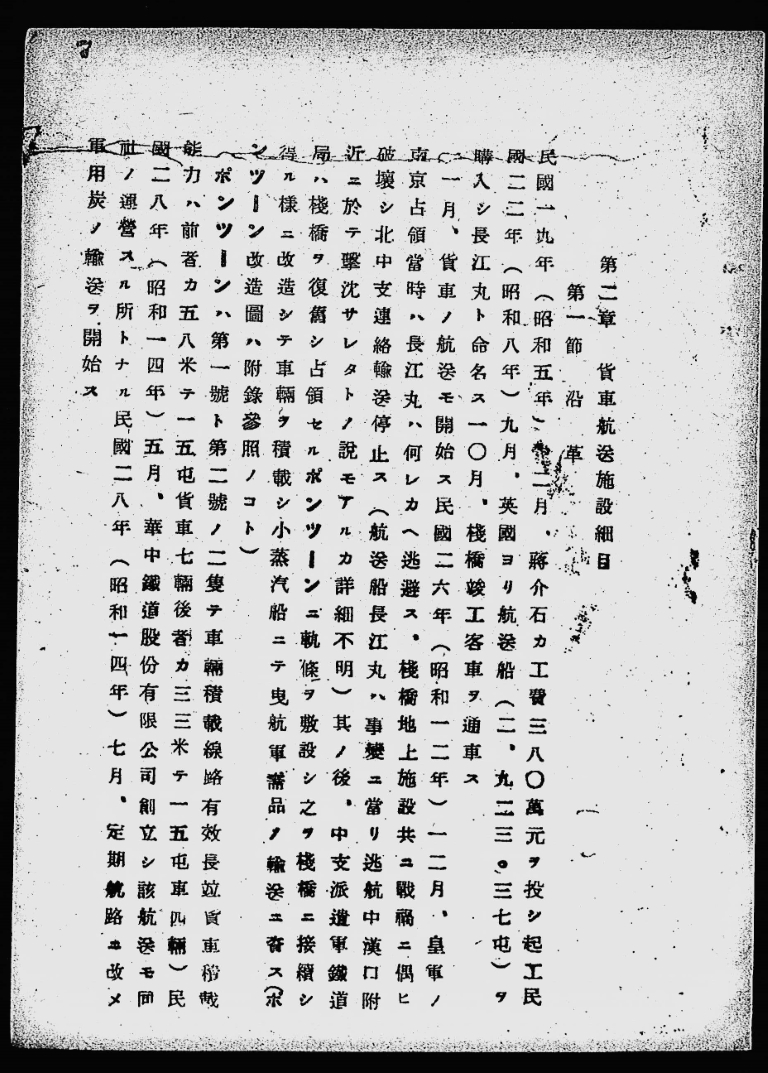 第二章 貨車航送施設細目
第一節 沿革
民國一九年(昭和五年)一二月、蔣介石カ工費三八〇萬元ヲ投シ起工民
國二二年(昭和八年)九月、英國ヨリ航送船(二、九二三。三七屯)ヲ
購入シ長江丸ト命名ス一〇月、棧橋竣工客車ヲ通車ス
一月、貨車ノ航送モ開始ス民國二六年(昭和一二年)一二月、皇軍ノ
南京占領當時ハ長江丸ハ何レカヘ逃避ス、棧橋地上施設共ニ戰禍ニ偶ヒ
破壞シ北中支連絡輸送停止ス(航送船長江丸ハ事變ニ當リ逃航中漢口附
近ニ於テ擊沈サレタトノ說モアルカ詳細不明)其ノ後、中支派遣軍鐵道
局ハ棧橋ヲ復舊シ占領セルポンツーンニ軌條ヲ敷設シ之ヲ棧橋ニ接續シ
得ル樣ニ改造シテ車輛ヲ積載シ小蒸汽船ニテ曳航軍需品ノ輸送ニ資ス(ポ
ンツーン改造圖ハ附錄參照ノコト)
ポンツーンハ第一號ト第二號ノ二隻テ車輛積載線路有效長竝貨車積載
能力ハ前者カ五八米テ一五屯貨車七輛後者カ三三米テ一五屯車四輛)民
國二八年(昭和一四年)五月、華中鐵道股份有限公司創立シ該航送モ同
社ノ運營スル所トナル民國二八年(昭和一四年)七月、定期航路ニ改メ
軍用炭ノ輸送ヲ開始ス